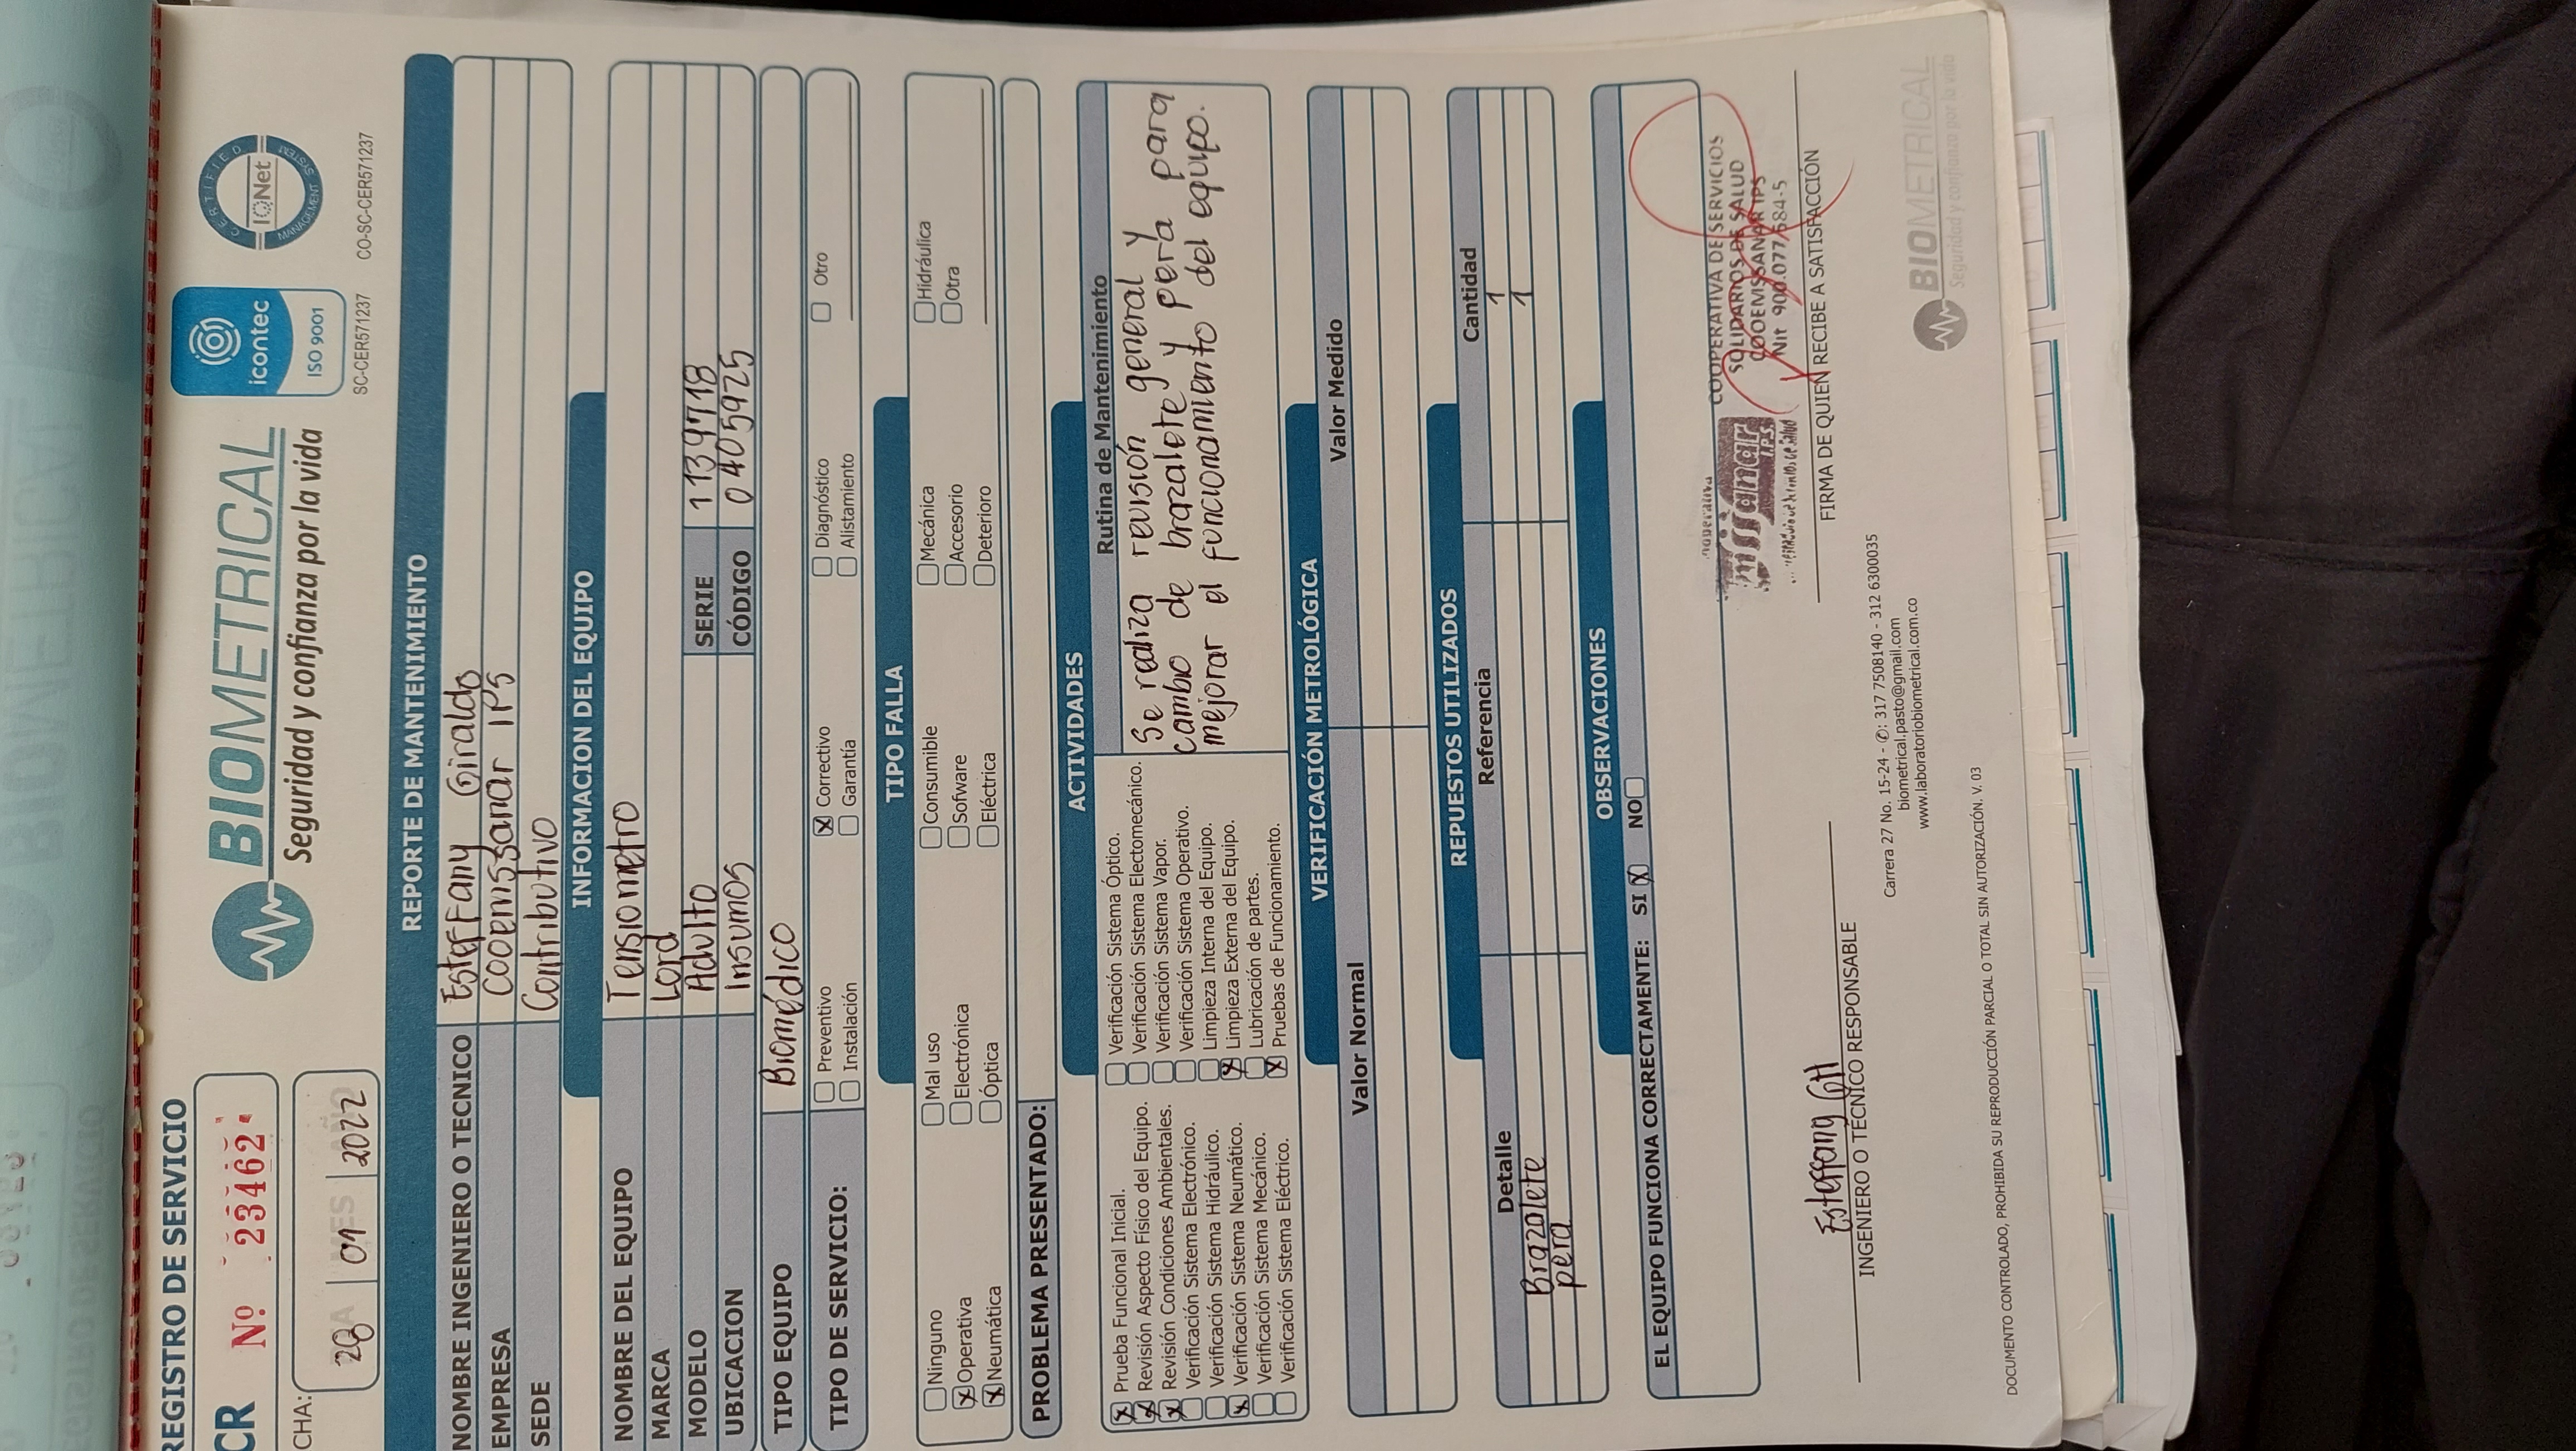 REGISTRO DE SERVICIO
CR Nº 23462
CHA:
28 01 2022
BIOMETRICAL
Seguridad y confianza por la vida
icontec
ISO 9001
SC-CER571237
CERTIFIED
IQNet
MANAGEMENT SYSTEM
CO-SC-CER571237
REPORTE DE MANTENIMIENTO
NOMBRE INGENIERO O TECNICO Esteffany Giraldo
EMPRESA Cooemssanar IPS
SEDE Contributivo
INFORMACION DEL EQUIPO
NOMBRE DEL EQUIPO Tensiometro
MARCA Lord
MODELO Adulto SERIE 1139718
UBICACION Insumos CÓDIGO 0405925
TIPO EQUIPO Biomédico
TIPO DE SERVICIO:
Preventivo X Correctivo Diagnóstico Otro
Instalación Garantía Alistamiento
TIPO FALLA
Ninguno Mal uso Consumible Mecánica Hidráulica
X Operativa Electrónica Sofware Accesorio Otra
X Neumática Óptica Eléctrica Deterioro
PROBLEMA PRESENTADO:
ACTIVIDADES
X Prueba Funcional Inicial.
X Revisión Aspecto Físico del Equipo.
X Revisión Condiciones Ambientales.
Verificación Sistema Electrónico.
Verificación Sistema Hidráulico.
X Verificación Sistema Neumático.
Verificación Sistema Mecánico.
Verificación Sistema Eléctrico.
Verificación Sistema Óptico.
Verificación Sistema Electomecánico.
Verificación Sistema Vapor.
Verificación Sistema Operativo.
Limpieza Interna del Equipo.
X Limpieza Externa del Equipo.
Lubricación de partes.
X Pruebas de Funcionamiento.
Rutina de Mantenimiento
Se realiza revisión general y
cambio de brazalete y pera para
mejorar el funcionamiento del equipo.
VERIFICACIÓN METROLÓGICA
Valor Normal Valor Medido
REPUESTOS UTILIZADOS
Detalle Referencia Cantidad
Brazalete 1
pera 1
OBSERVACIONES
EL EQUIPO FUNCIONA CORRECTAMENTE: SI X NO
Esteffany GH
INGENIERO O TÉCNICO RESPONSABLE
mssanar
I.P.S.
COOPERATIVA DE SERVICIOS
SOLIDARIOS DE SALUD
COOEMSSANAR IPS
Nit 900.077.584-5
FIRMA DE QUIEN RECIBE A SATISFACCIÓN
Carrera 27 No. 15-24 - ✆: 317 7508140 - 312 6300035
biometrical.pasto@gmail.com
www.laboratoriobiometrical.com.co
BIOMETRICAL
Seguridad y confianza por la vida
DOCUMENTO CONTROLADO, PROHIBIDA SU REPRODUCCIÓN PARCIAL O TOTAL SIN AUTORIZACIÓN. V. 03